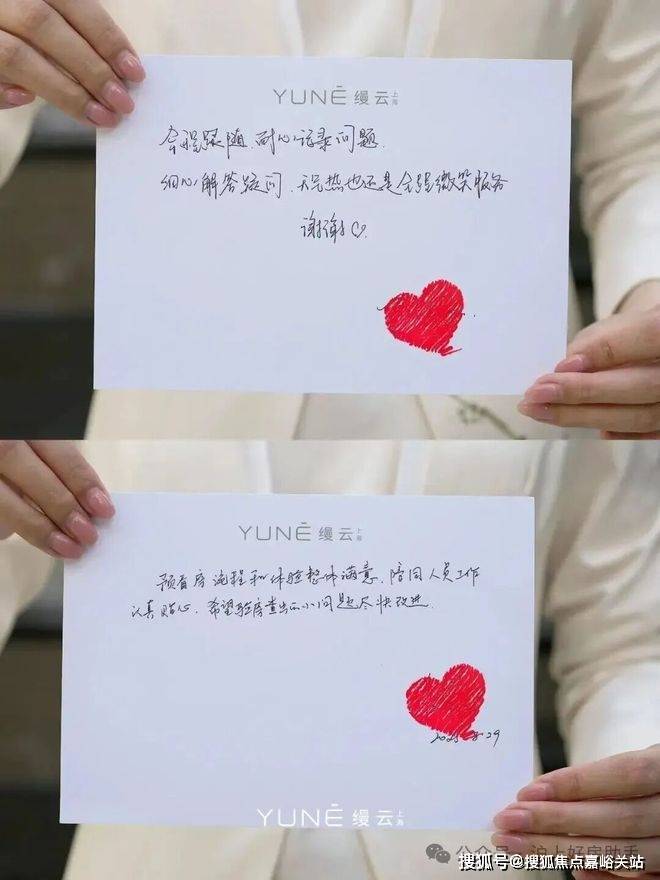 YUNÉ 缦云上海
全程跟随、耐心记录问题、
细心解答疑问、天气热也还是全程微笑服务
谢谢♡.
YUNÉ 缦云上海
预看房流程和体验整体满意、陪同人员工作
认真贴心、希望验房查出的小问题尽快改进.
29
YUNÉ 缦云上海
公众号 沪上好房助手
搜狐号@搜狐焦点嘉峪关站